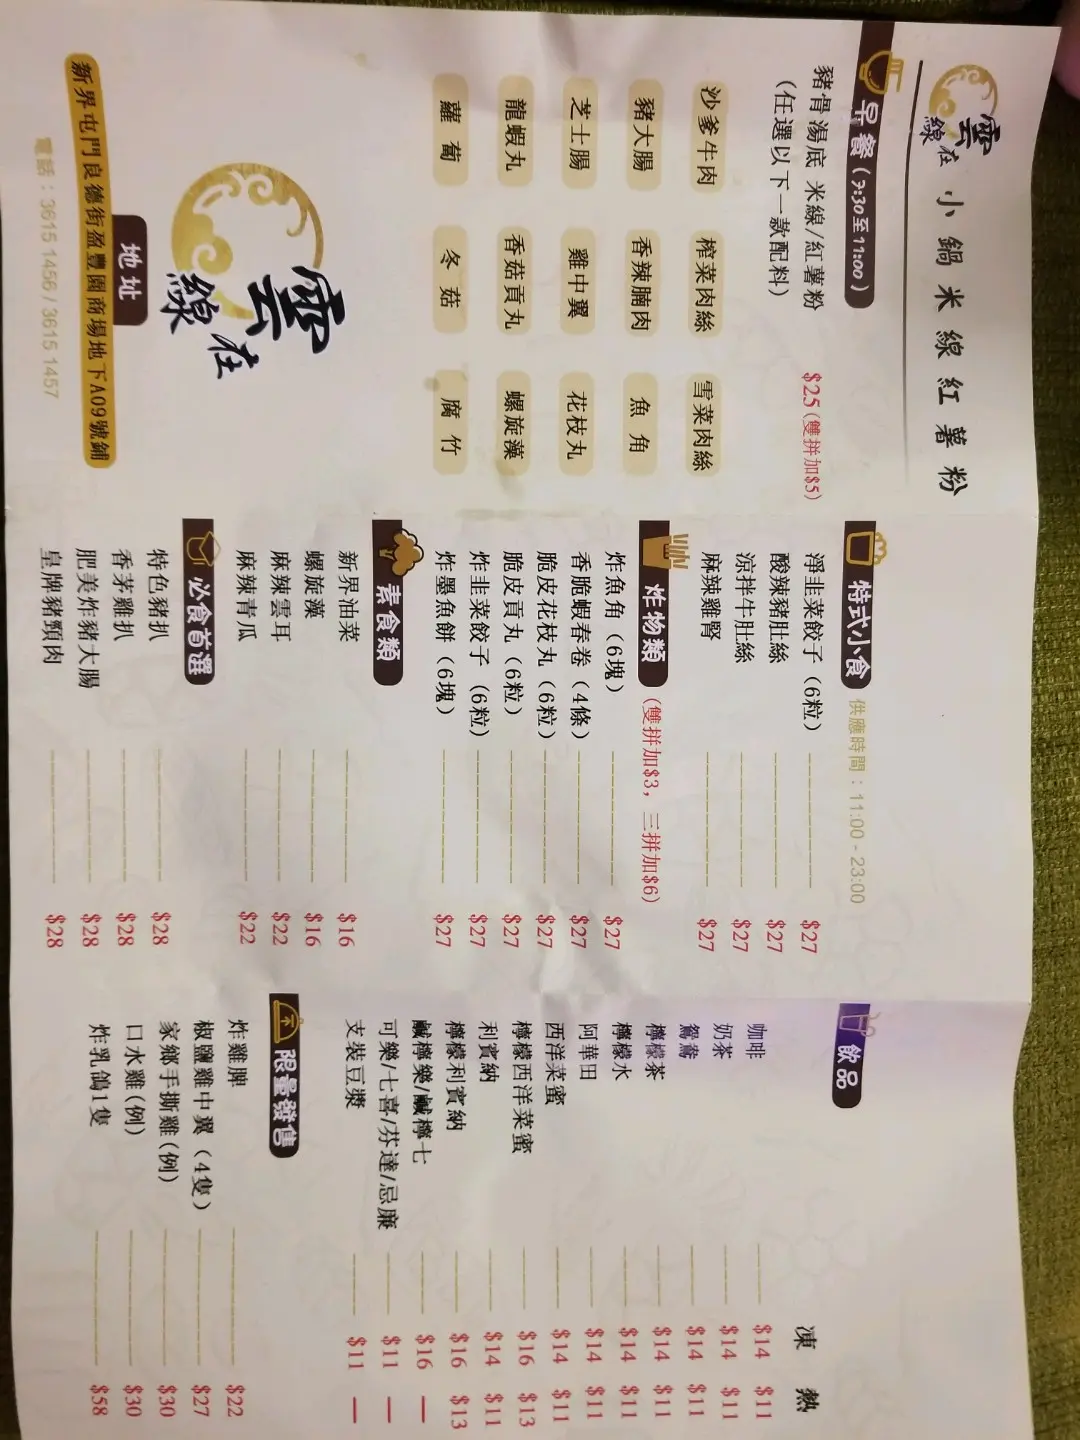 雲在線
小鍋米線紅薯粉
早餐(7:30至11:00)
豬骨湯底 米線/紅薯粉 $25(雙拼加$5)
(任選以下一款配料)
沙爹牛肉 榨菜肉絲 雪菜肉絲
豬大腸 香辣腩肉 魚角
芝士腸 雞中翼 花枝丸
龍蝦丸 香菇貢丸 螺旋藻
蘿蔔 冬菇 腐竹
雲在線
地址
新界屯門良德街盈豐園商場地下A09號鋪
電話：3615 1456 / 3615 1457
特式小食 供應時間：11:00 - 23:00
淨韭菜餃子（6粒） $27
酸辣豬肚絲 $27
涼拌牛肚絲 $27
麻辣雞腎 $27
炸物類 (雙拼加$3, 三拼加$6)
炸魚角（6塊） $27
香脆蝦春卷（4條） $27
脆皮花枝丸（6粒） $27
脆皮貢丸（6粒） $27
炸韭菜餃子（6粒） $27
炸墨魚餅（6塊） $27
素食類
新界油菜 $16
螺旋藻 $16
麻辣雲耳 $22
麻辣青瓜 $22
必食首選
特色豬扒 $28
香茅雞扒 $28
肥美炸豬大腸 $28
皇牌豬頸肉 $28
飲品
凍 熱
咖啡 $14 $11
奶茶 $14 $11
鴛鴦 $14 $11
檸檬茶 $14 $11
檸檬水 $14 $11
阿華田 $14 $11
西洋菜蜜 $14 $11
檸檬西洋菜蜜 $16 $13
利賓納 $14 $11
檸檬利賓納 $16 $13
鹹檸樂/鹹檸七 $16 —
可樂/七喜/芬達/忌廉 $11 —
支裝豆漿 $11 —
限量發售
炸雞脾 $22
椒鹽雞中翼（4隻） $27
家鄉手撕雞(例) $30
口水雞(例) $30
炸乳鴿1隻 $58